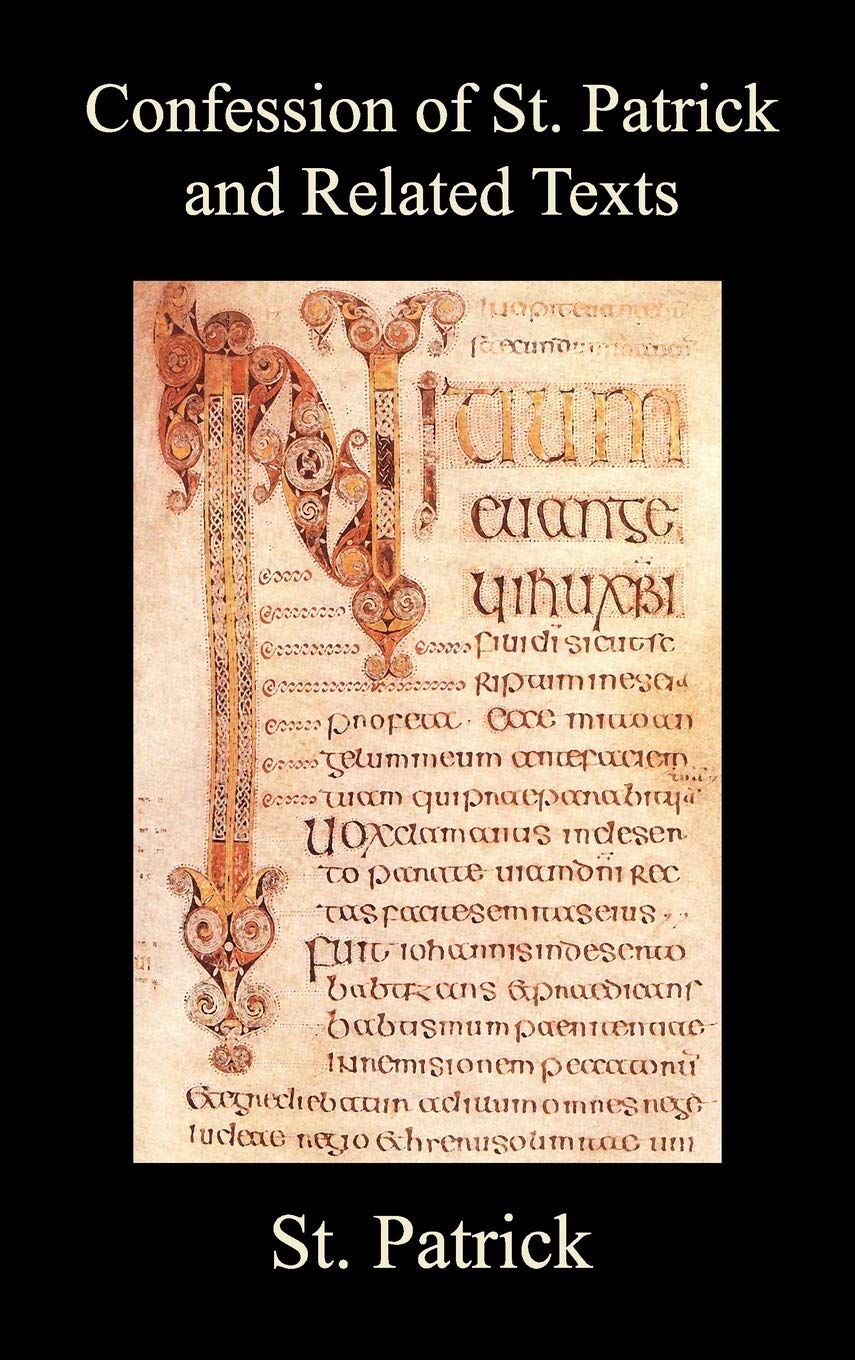 Confession of St. Patrick
and Related Texts
INITIUM
euange
lii ihu xpi
fili di sicut sc
riptum in esaia
profeta · Ecce mitto an
gelum meum ante faciem
tuam qui praeparabit
Uox clamantis in deser
to parate uiam dni rec
tas facite semitas eius
fuit iohannis in deserto
babtizans & praedicans
babtismum paenitentiae
in remisionem peccatoru
& egrediebatur ad illum omnes
iudeae regio & uni
St. Patrick